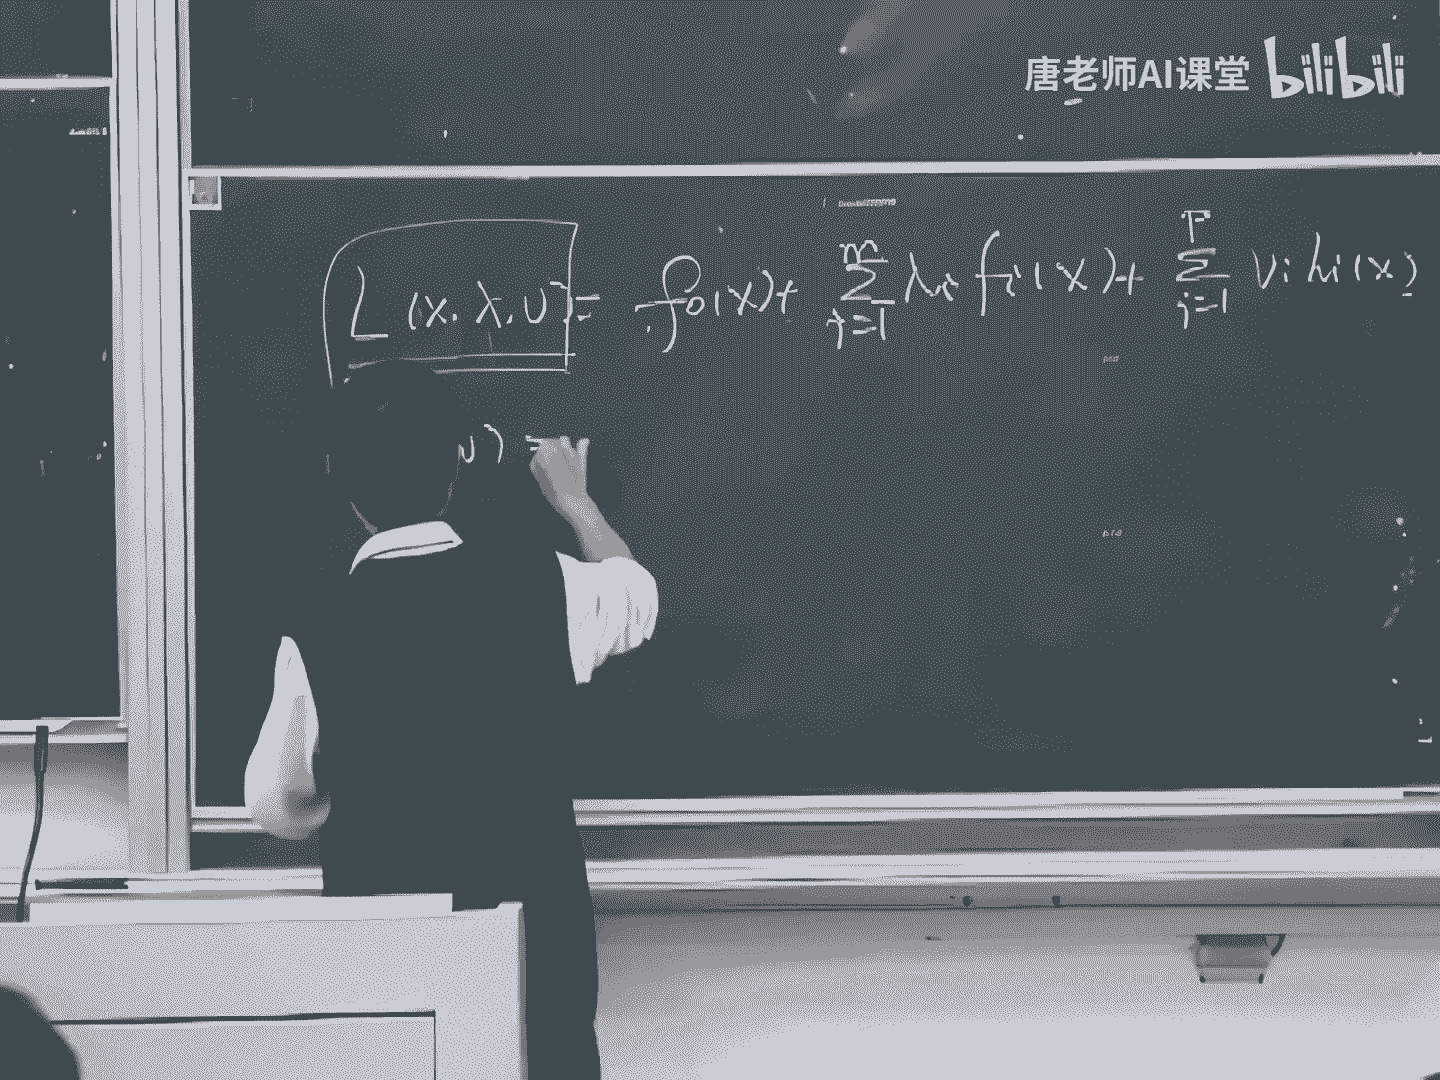 唐老师AI课堂 bilibili
L (x, λ, υ) = f₀(x) + ∑ᵢ₌₁ᵐ λᵢ fᵢ(x) + ∑ᵢ₌₁ᴾ νᵢ hᵢ(x)
υ) =